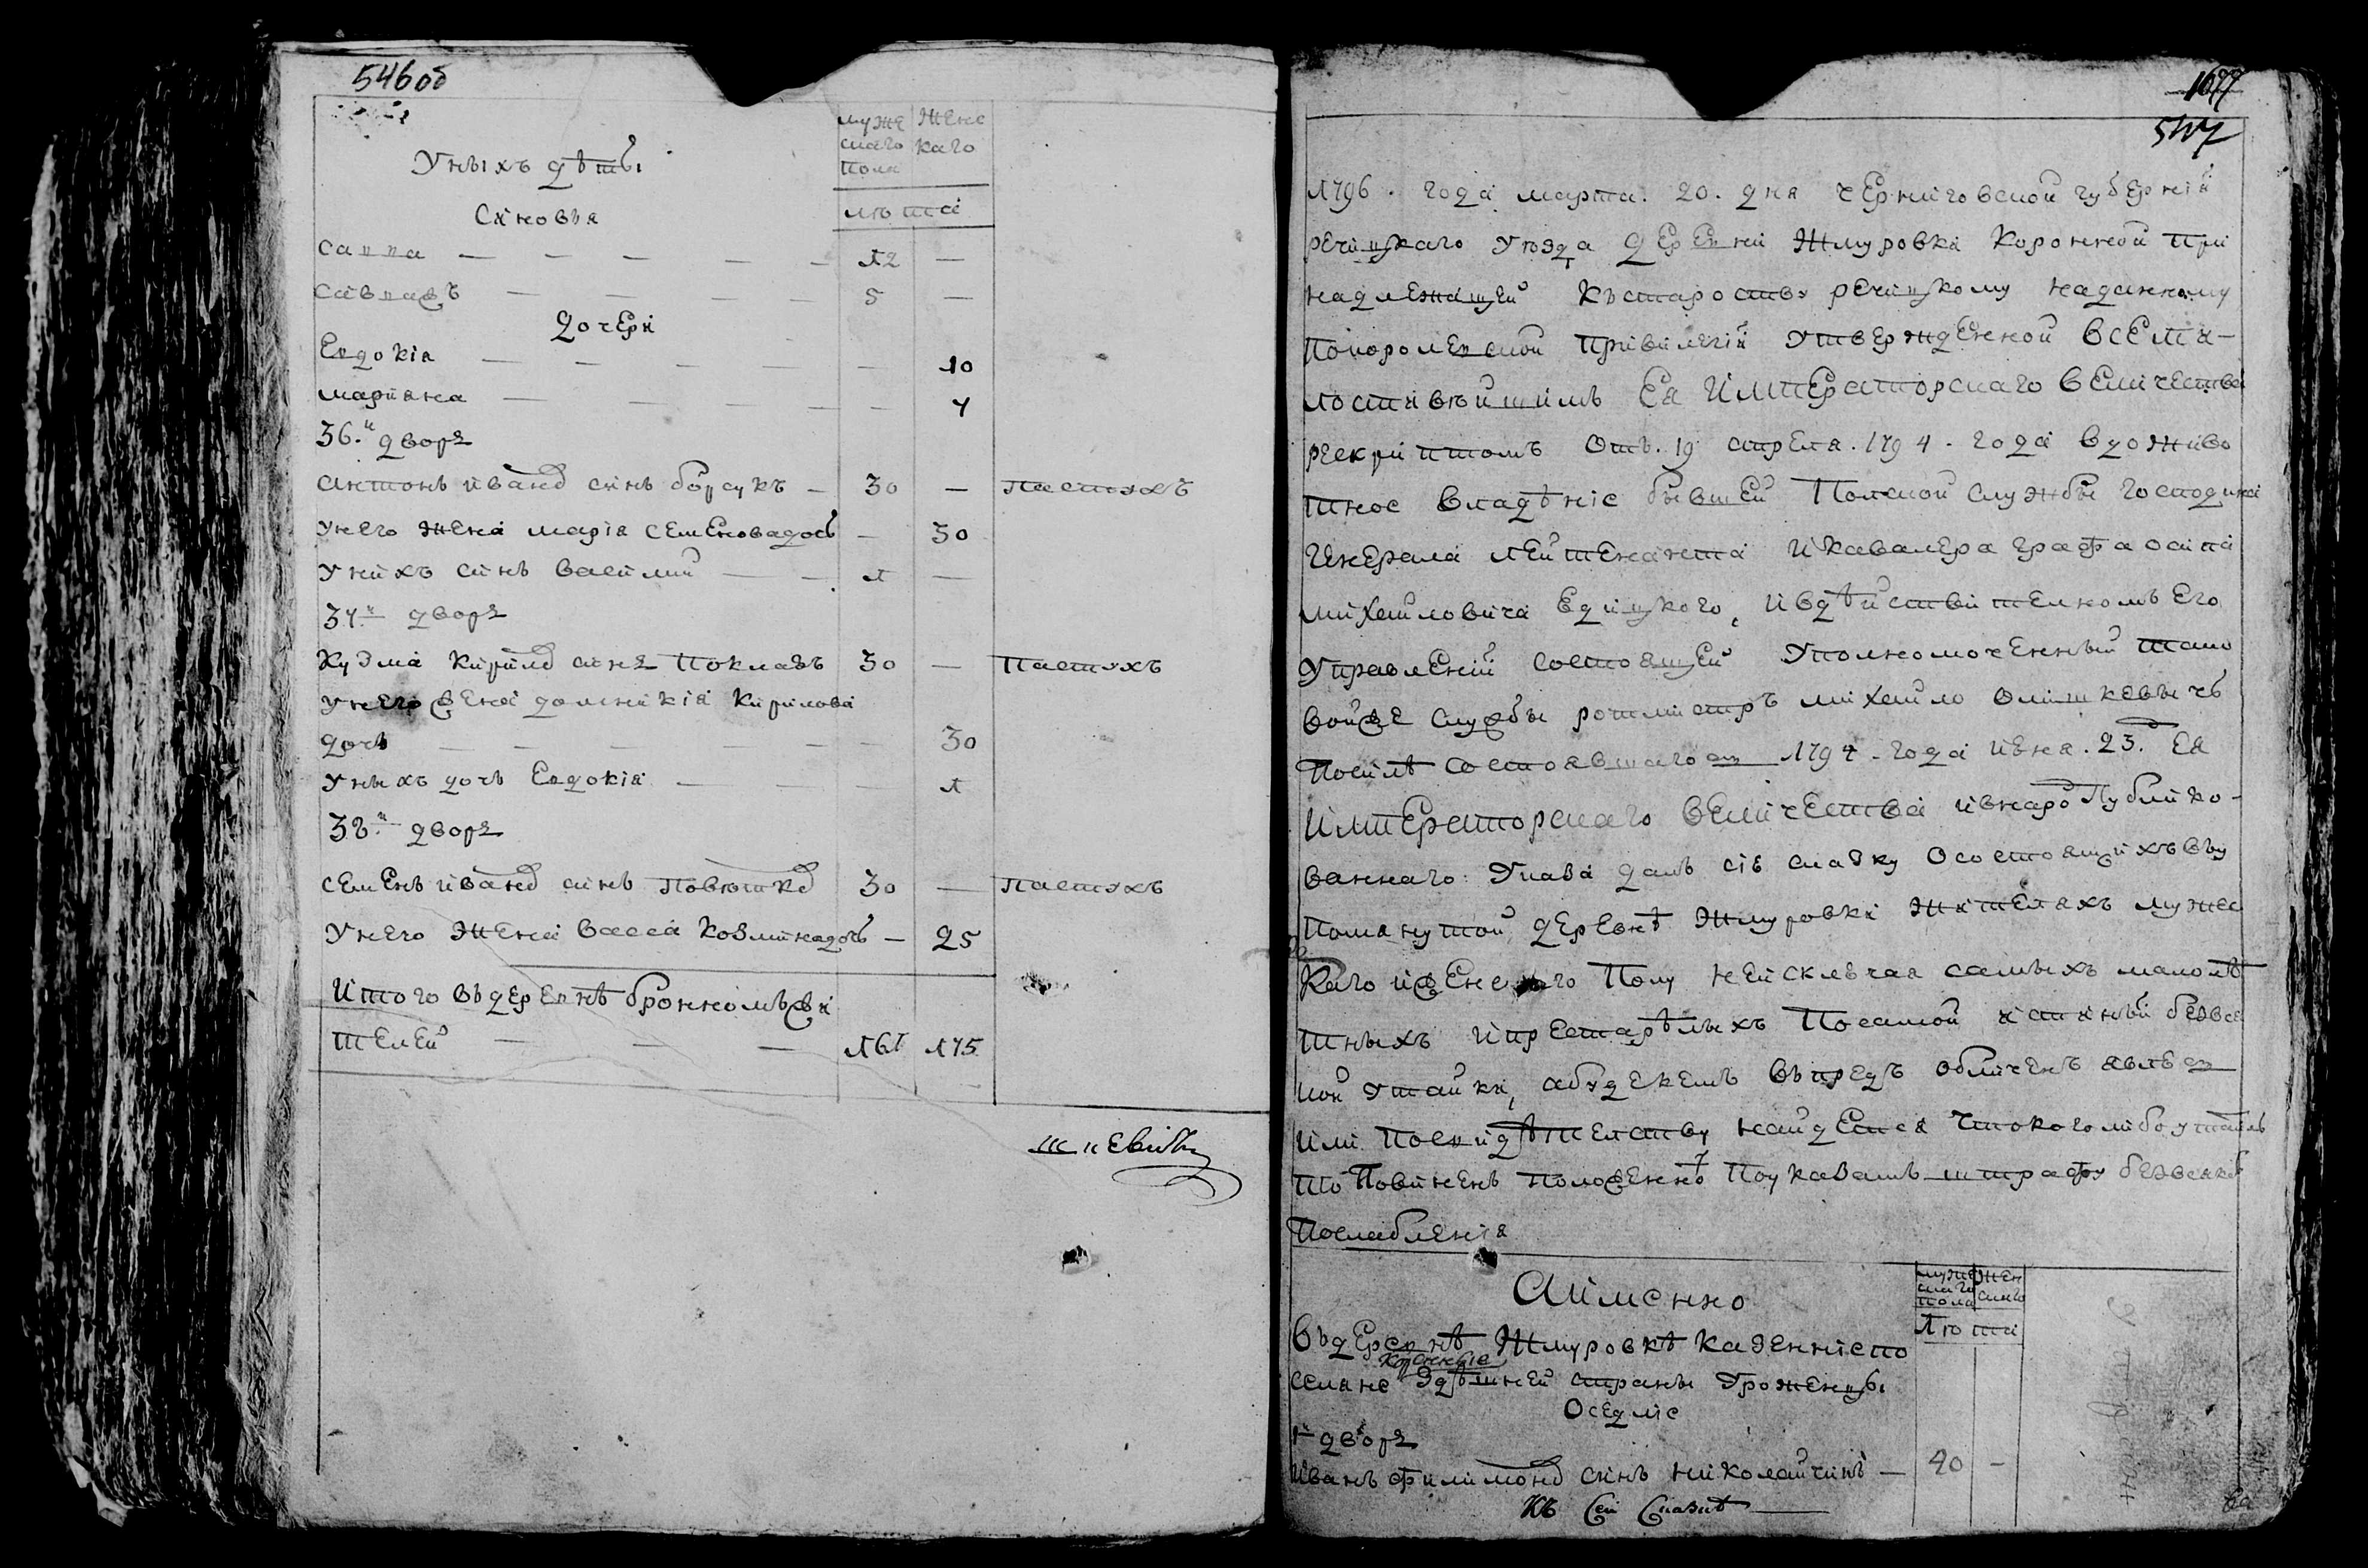 546об
муже
скаго
пола
женс
каго
Уныхъ дѣтѣи
лѣта
Синовья
Савка — 12 —
5 —
Дочери
Евдокія — 10
Марияна — 7
36.й дворъ
Антонъ ивановъ синъ борсукъ — 30 — пастухъ
Унего жена марія семеновадочь — 30
Унихъ синъ василии — 1 —
37й дворъ
Кузма кириловъ синъ 30 — Пастухъ
Унего жена домникія Кирилова
дочъ — 30
Уныхъ дочъ Евдокія — 1
38.й дворъ
Семенъ ивановъ синъ 30 — пастухъ
Унего жена васса козминадочъ — 25
Итого въдеревнѣ бронномъжи
телей — 161 175
1077
547
1796. года марта. 20. дня черниговской губернїй
речицкаго уюзда деревни Жмуровки коронной при
надлежащей къстароству речицкому наданному
покоролевской привилегїй утвержденной всеми-
лостивюйшимъ Ея Императорскаго величества
рескриптомъ отъ. 19 апреля. 1794. года вдоживо
тное владѣніе бывшей Полской службы господина
Генерала лейтенанта икавалера графа осипа
михайловича , ивдѣйствителномъ его
управленїй состоящей Уполномоченный
войске службы ротмистръ михайло олишкевычъ
Посилѣ состоявшагося 1794. года июня. 23. Ея
императорскаго величества ивнарод Публико-
ваннаго: Указа далъ сіе сказку осостоящихъвъу
помянутой деревнѣ Жмуровки жителяхъ мужес
каго иженскаго полу неисключая самыхъ малолѣ
тныхъ ипрестарѣлыхъ Посамой истиннѣй безвся
кой утайки, абуде кемъ впредъ обличенъ явлюся
или посвидѣтелству найдется чтокоголибо утаилъ
то Повиненъ положенно Поуказамъ штрафу безвсяко
послабленія
Аименно
муже
скаго
пола
жен
скаго
лѣта
Въдеревнѣ Жмуровкѣ казенніепо
коренные
селяне здѣшней страны урожденцы
Оседліе
1й дворъ
Иванъ филимоновъ синъ николайчикъ — 40 —
Къ Сей Сказкѣ